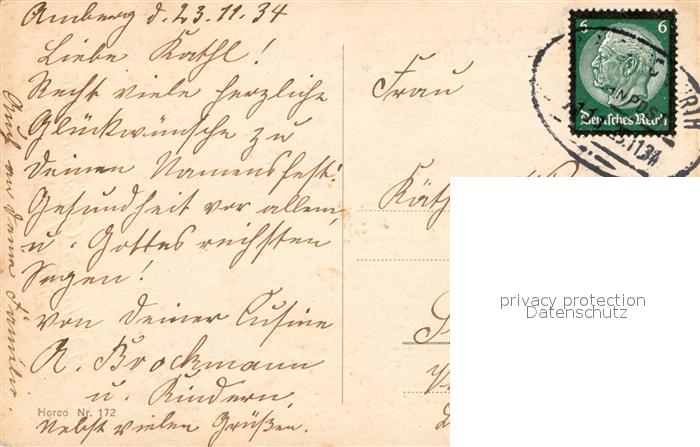 Amberg d. 23.11.34
Liebe Kathl!
Recht viele herzliche
Glückwünsche zu
deinen Namensfest!
Gesundheit vor allem,
u. Gottes reichsten
Segen!
von deiner Cusine
R. Brockmann
u. Kindern,
Nebst vielen Grüßen.
Horco Nr. 172
Frau
Käth
6 6
Deutsches Reich
.11.34
privacy protection
Datenschutz